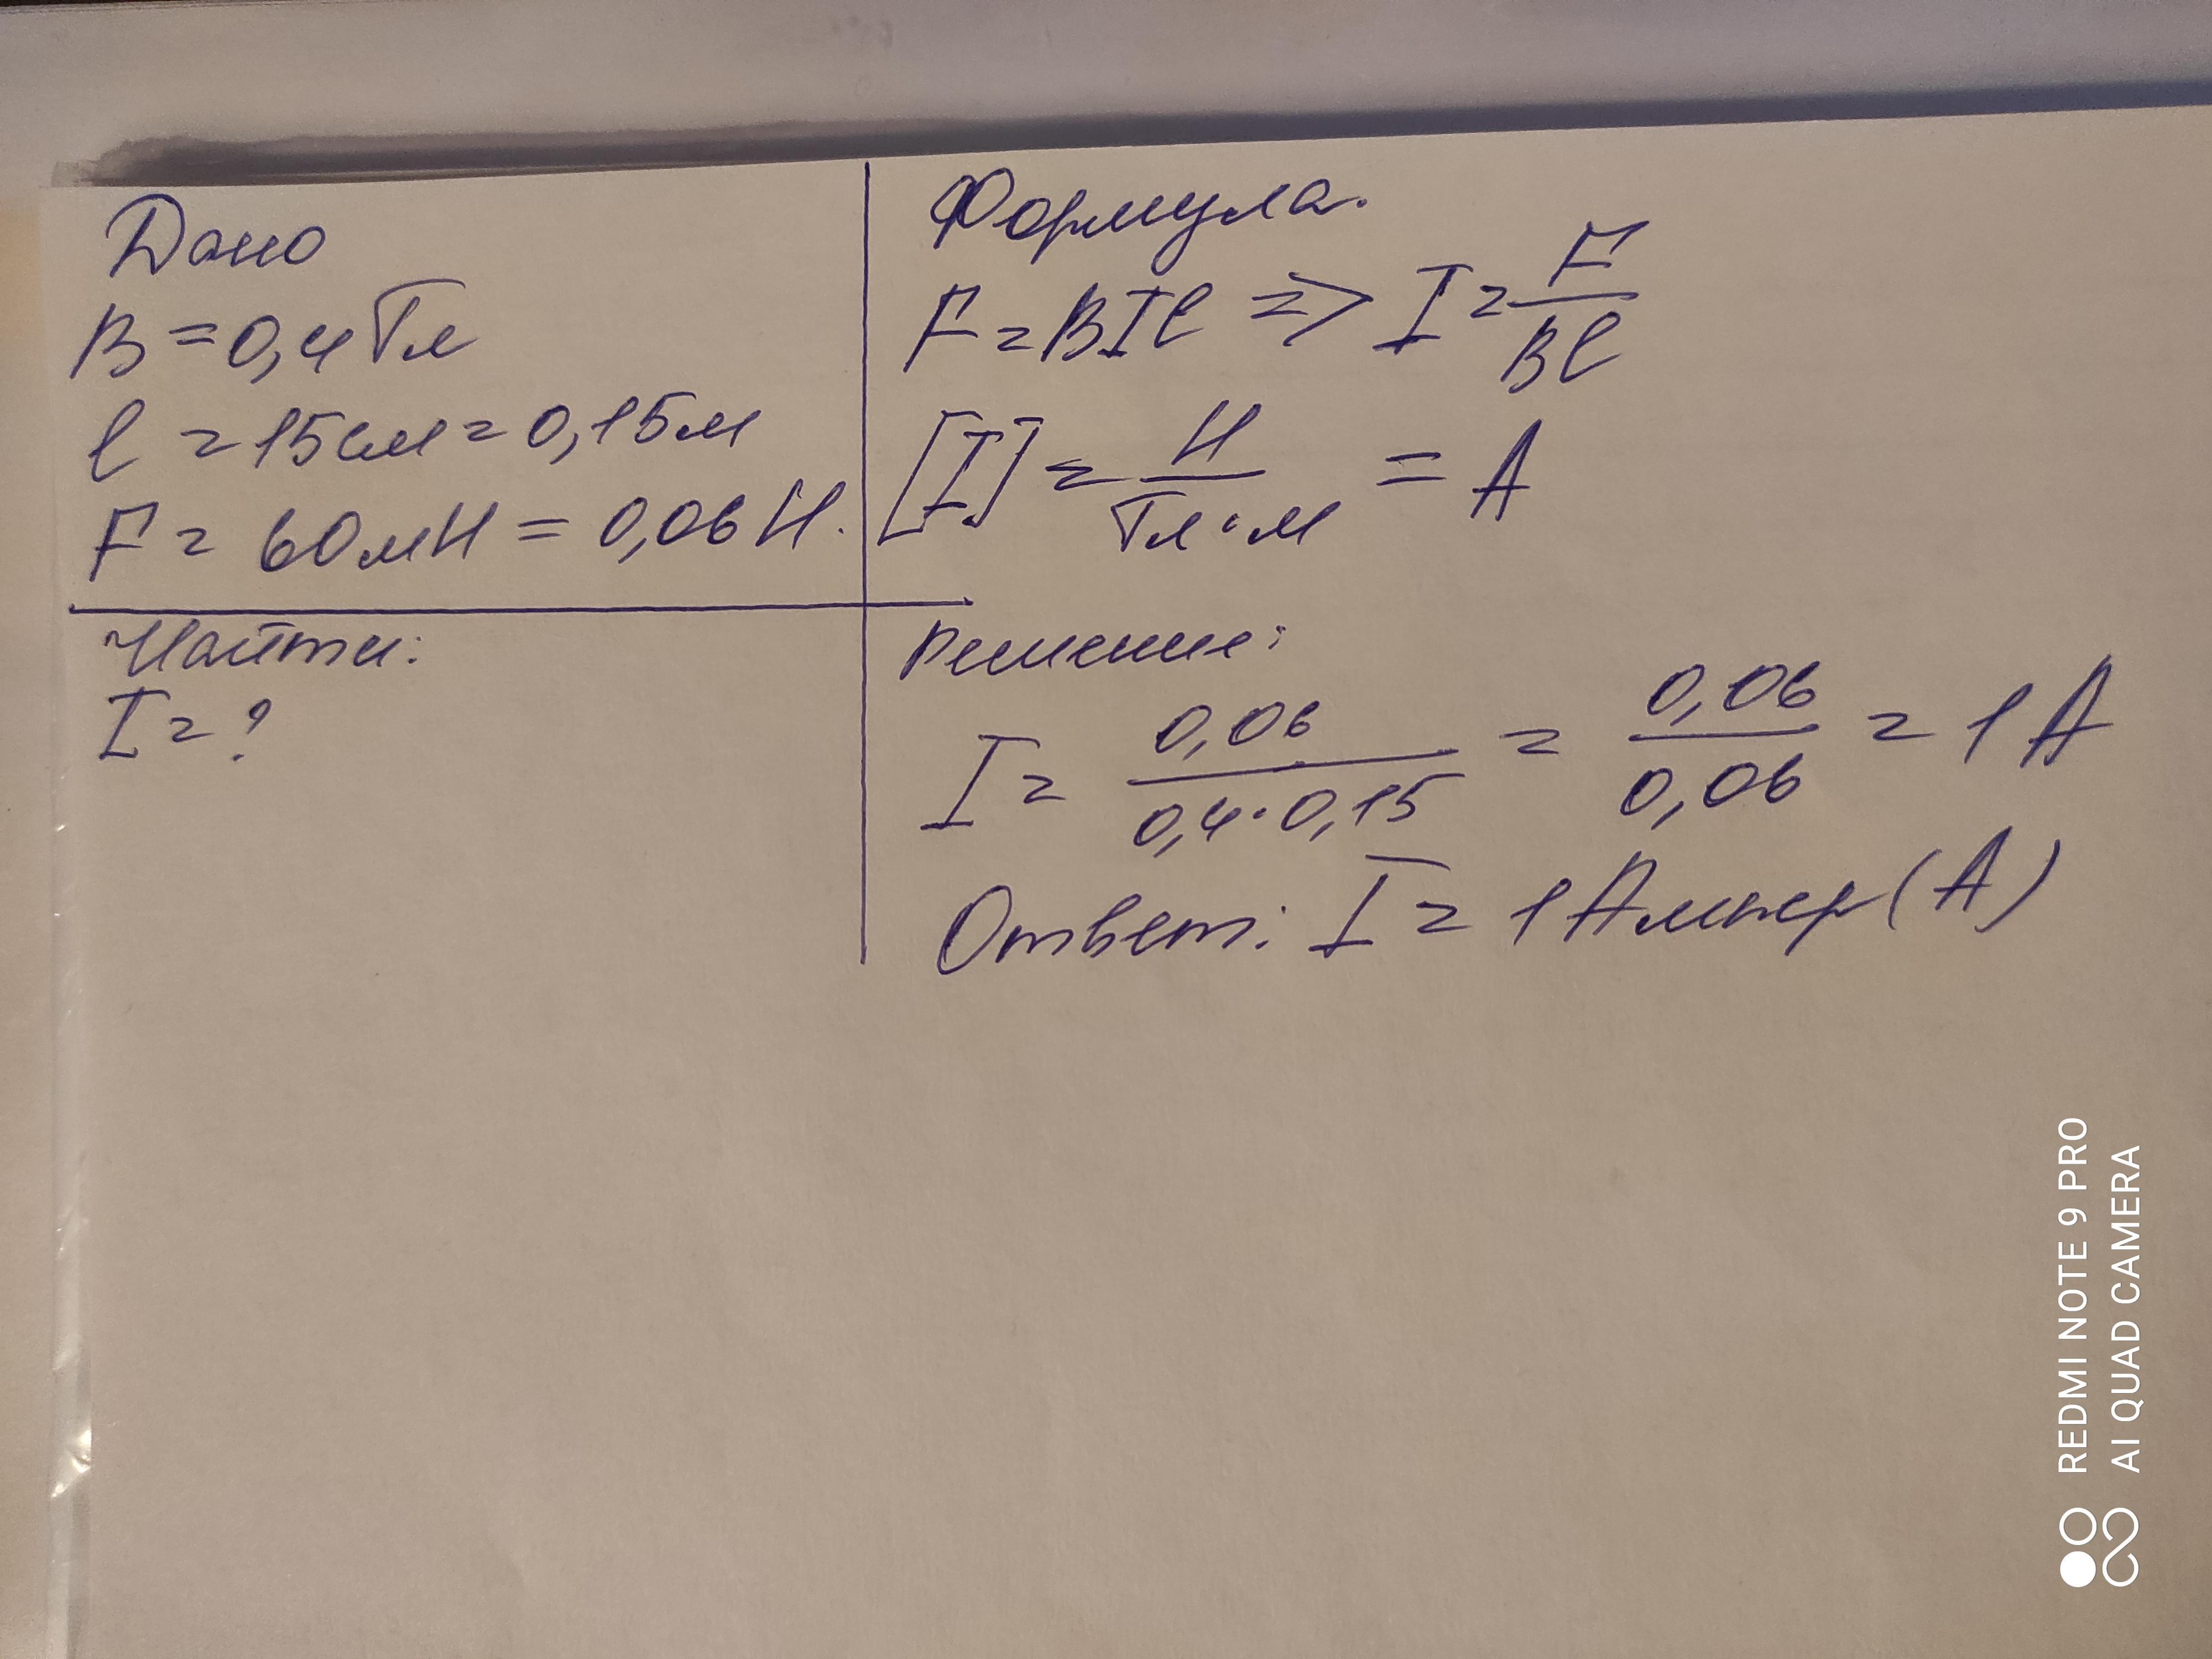 Дано
B = 0,4 Тл
l = 15 см = 0,15 м
F = 60 мН = 0,06 Н.
Найти:
I = ?
Формула.
F = BIl => I = F/Bl
[I] = Н/Тл·м = А
Решение:
I = 0,06/0,4·0,15 = 0,06/0,06 = 1 А
Ответ: I = 1 Ампер (А)
REDMI NOTE 9 PRO
AI QUAD CAMERA